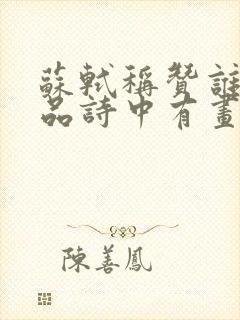 蘇軾稱贊誰
品詩中有畫
陳善鳳